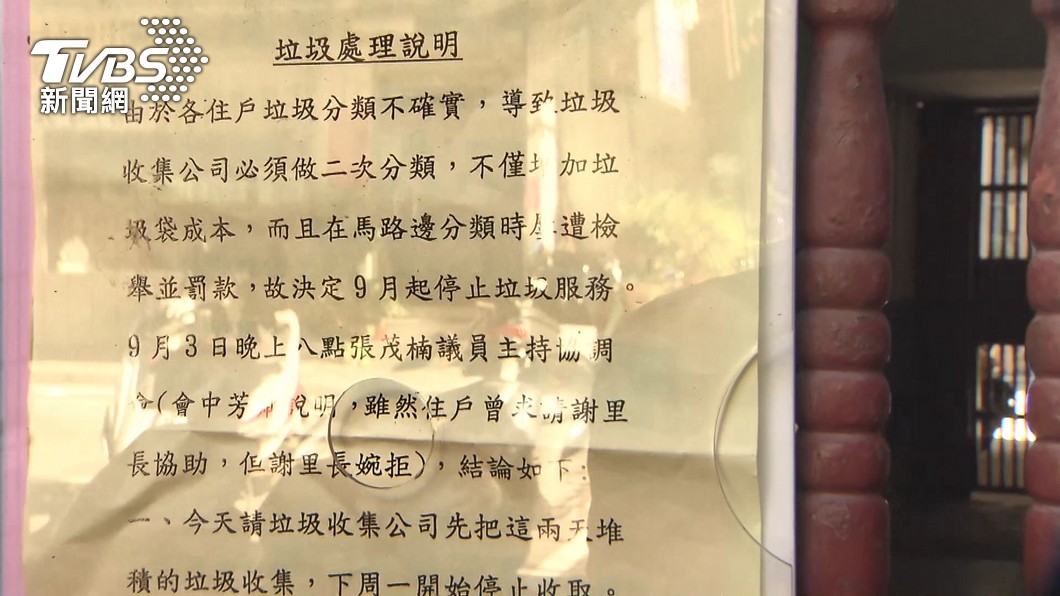 TVBS
新聞網
垃圾處理說明
由於各住戶垃圾分類不確實，導致垃圾
收集公司必須做二次分類，不僅增加垃
圾袋成本，而且在馬路邊分類時屢遭檢
舉並罰款，故決定9月起停止垃圾服務。
9月3日晚上八點張茂楠議員主持協調
會(會中芳 說明，雖然住戶曾求請謝里
長協助，但謝里長婉拒)，結論如下：
一、今天請垃圾收集公司先把這兩天堆
積的垃圾收集，下周一開始停止收取。